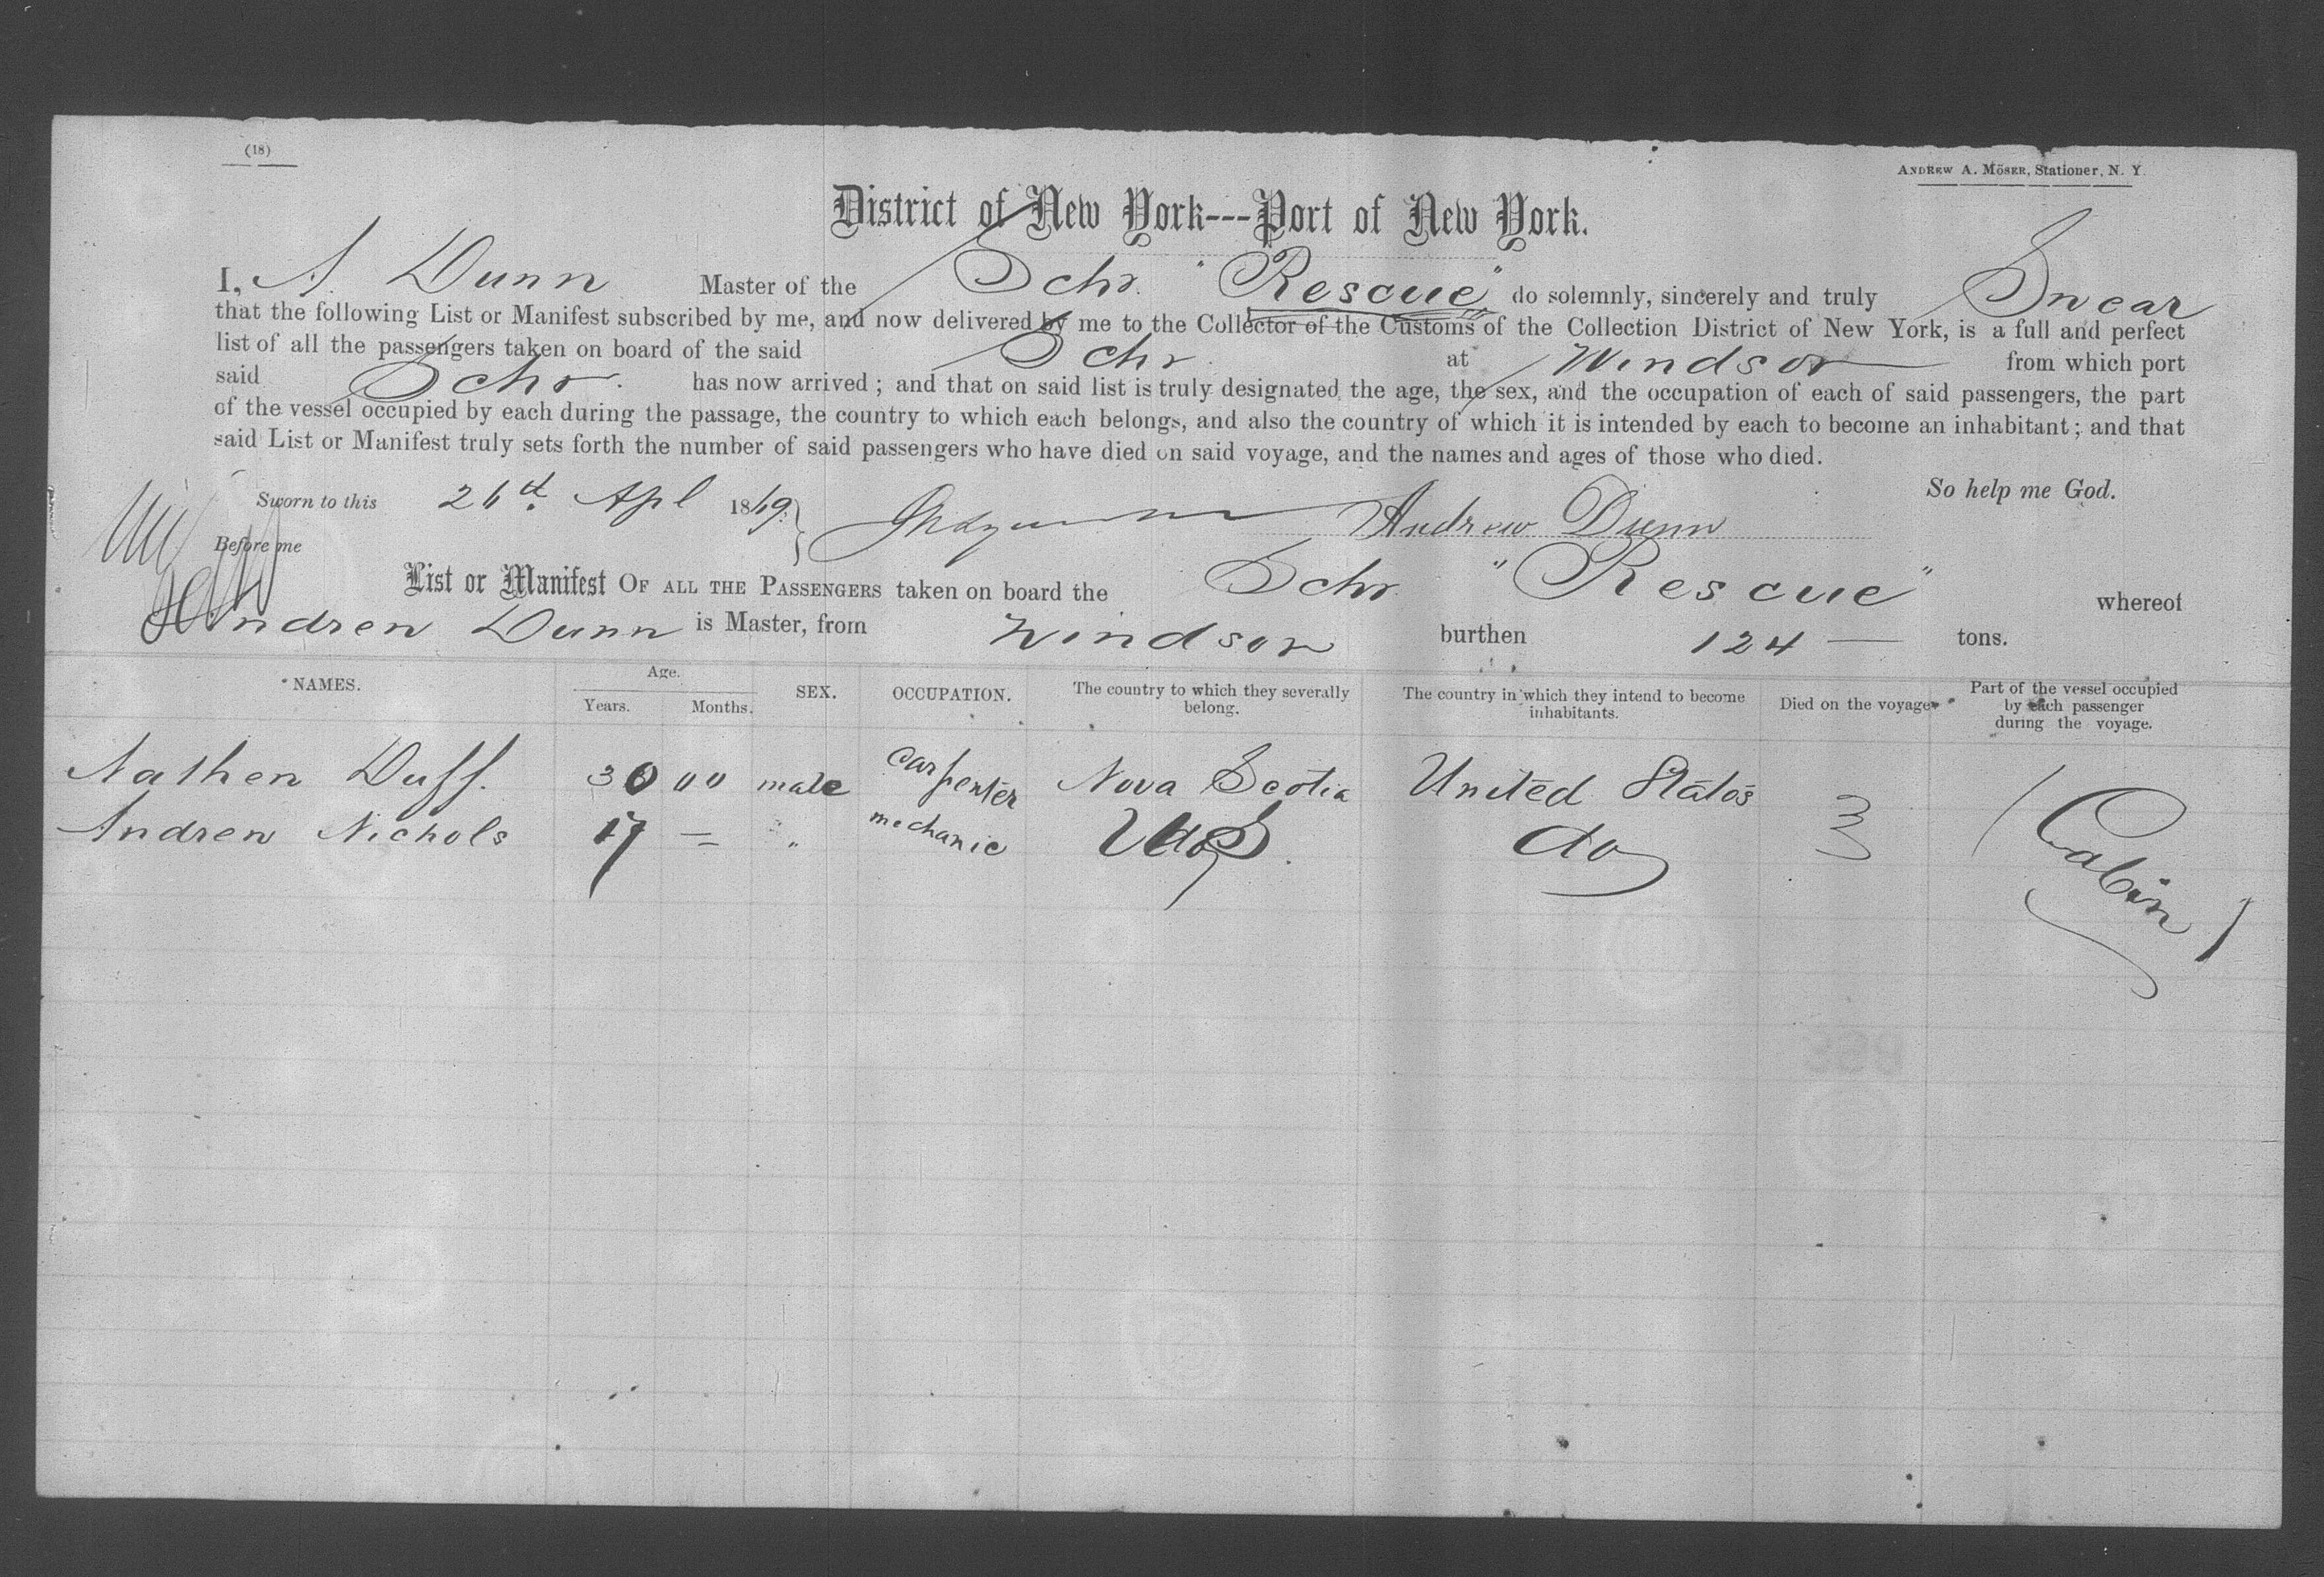 (18)
ANDREW A. MÖSER, Stationer, N. Y.
District of New York---Port of New York.
I, A. Dunn Master of the Schr. "Rescue" do solemnly, sincerely and truly Swear
that the following List or Manifest subscribed by me, and now delivered by me to the Collector of the Customs of the Collection District of New York, is a full and perfect
list of all the passengers taken on board of the said Schr. at Windsor from which port
said Schr. has now arrived; and that on said list is truly designated the age, the sex, and the occupation of each of said passengers, the part
of the vessel occupied by each during the passage, the country to which each belongs, and also the country of which it is intended by each to become an inhabitant; and that
said List or Manifest truly sets forth the number of said passengers who have died on said voyage, and the names and ages of those who died.
So help me God.
Sworn to this 26th Apl 1869 Andrew Dunn
Before me
List or Manifest OF ALL THE PASSENGERS taken on board the Schr. "Rescue" whereof
Andrew Dunn is Master, from Windsor burthen 124 — tons.
NAMES. Age. Years. Months. SEX. OCCUPATION. The country to which they severally belong. The country in which they intend to become inhabitants. Died on the voyage. Part of the vessel occupied by each passenger during the voyage.
Nathen Duff. 30 00 male carpenter Nova Scotia United States Cabin
Andrew Nichols 17 — " mechanic do